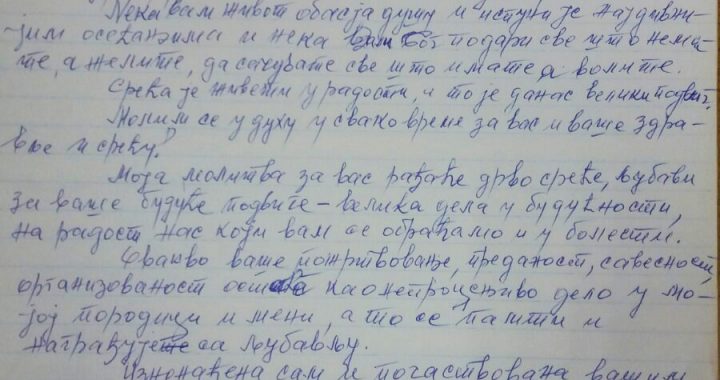 Нека вам живот обасја душу и испуни је најдивни-
-јим осећањима и нека вам Бог подари све што нема-
те, а желите, да сачувате све што имате а волите.
Срећа је живети у радости, и то је данас велики подвиг.
Молим се у духу у свако време за вас и ваше здра-
вље и срећу!
Моја молитва за вас рађаће дрво среће, љубави
за ваше будуће подвиге – велика дела у будућности,
на радост нас који вам се обраћамо и у болестим.
Овакво ваше пожртвовање, преданост, савесност,
организованост остаће као непроцењиво дело у мо-
-јој породици и мени, а то се памти и
награђује са љубављу.
Изненађена сам и почаствована вашим